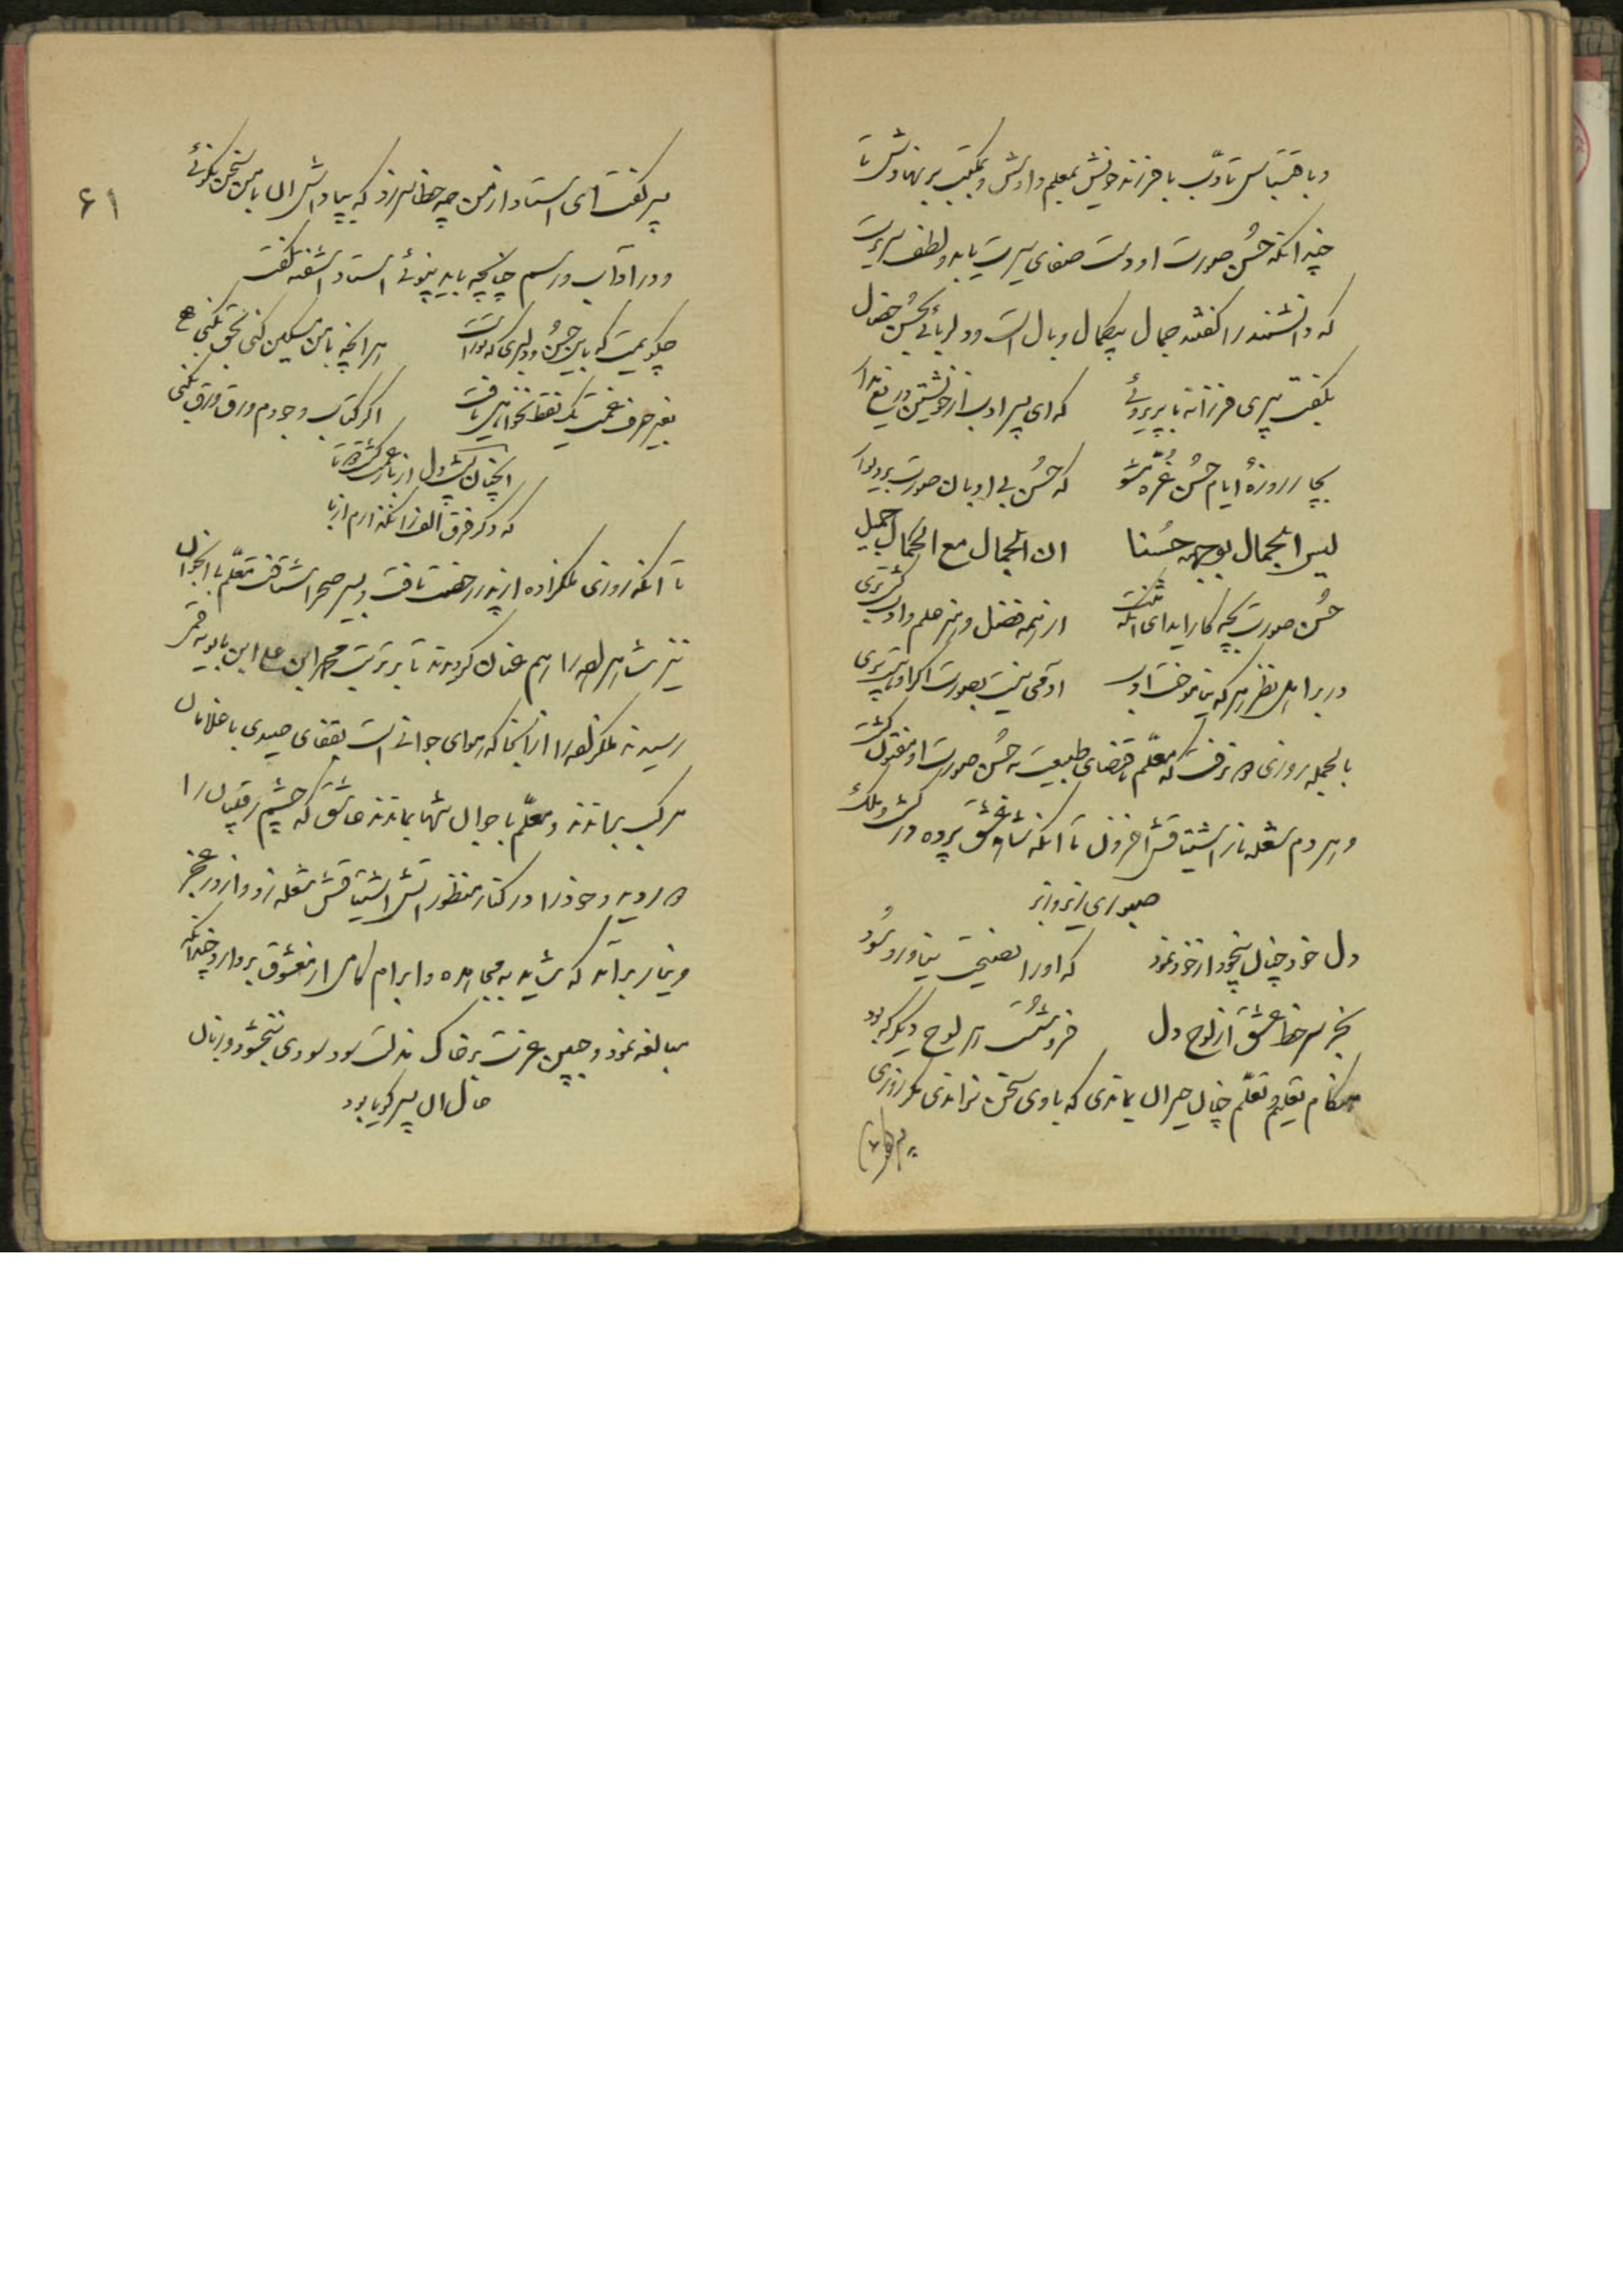 و باقتباس تأدّب با فرزند خویش بمعلم دادش و بمکتب بر نهادش تا
چندانکه حُسن صورت اوراست صفای سیرت یابد و لطف سریرت
که دانشمندرا گفتند جمال بیکمال وبال است و دلربائی بحُسن خصال
بگفت پیری فرزانه با پریروئے که ای پسر ادب از خویشتن دریغ مدار
بچار روزهٔ ایام حُسن غُرّه مشو که حُسن بی ادبان صورت بدیوار
لیس الجمال بوجهه حسنا ان الجمال مع الکمال جمیل
حُسن صورت بچه کار اید ای انکه از همه فضل و هنر علم و ادب
در بر اهل نظر هر که نیاموخت ادب ادمی نیست بصورت اگر او
بالجمله روزی نرفت که معلّم باقتضای طبیعت به حُسن صورت او مفتون گشت
و هر دم شعله نار اشتیاقش افزون تا انکه شاه عشق پرده در کشور
صبوری زیر و زبر
دل خود چنان بیخود از خود نمود که اورا نصیحت نیاورد سُود
بجز سر خط عشق از لوح دل فرو شُست هر لوح دیگر که بود
هنگام تعلیم و تعلّم چنان حیران بماندی که با وی سخن نراندی مگر روزی
پسر گفت
۶۱
پسر گفت ای استاد از من چه خطا سر زد که بپاداش ان با من سخن نگوئے
و در اداب و رسم چنانچه باید نپوئے استاد اشفته گفت
چگویمت که باین حُسن و دلبری که توراست هر انچه با من مسکین کنی بحق نکنی
بغیر حرف غمت یک نقطه نخواهی یافت اگر کتاب وجودم ورق ورق بکنی
انچنان پر شد دل از یار
که دگر فرق الف را نگذارم از با
تا انکه روزی ملکزاده از پدر رخصت یافت و بسیر صحرا شتافت معلّم با انجوان
نیز شاهزاده را هم عنان گردیدند تا بر تربت محمد ابن علی ابن بابویه قمی
رسیدند ملکزاده را از انجا که هوای جوانی است بقفای صیدی با غلامان
مرکب براندند و معلّم با جوان تنها بماندند عاشق که چشم رقیبان را
دید و خودرا در کنار منظور اتش اشتیاقش شعله زد و از در عجز
و نیاز بر امد که شاید به مجاهده و ابرام کامی از معشوق بردارد چندانکه
مبالغه نمود و جبین عزت بر خاک مذلت سود سودی نبخشود و از ان
حال ان پسر گویا بود